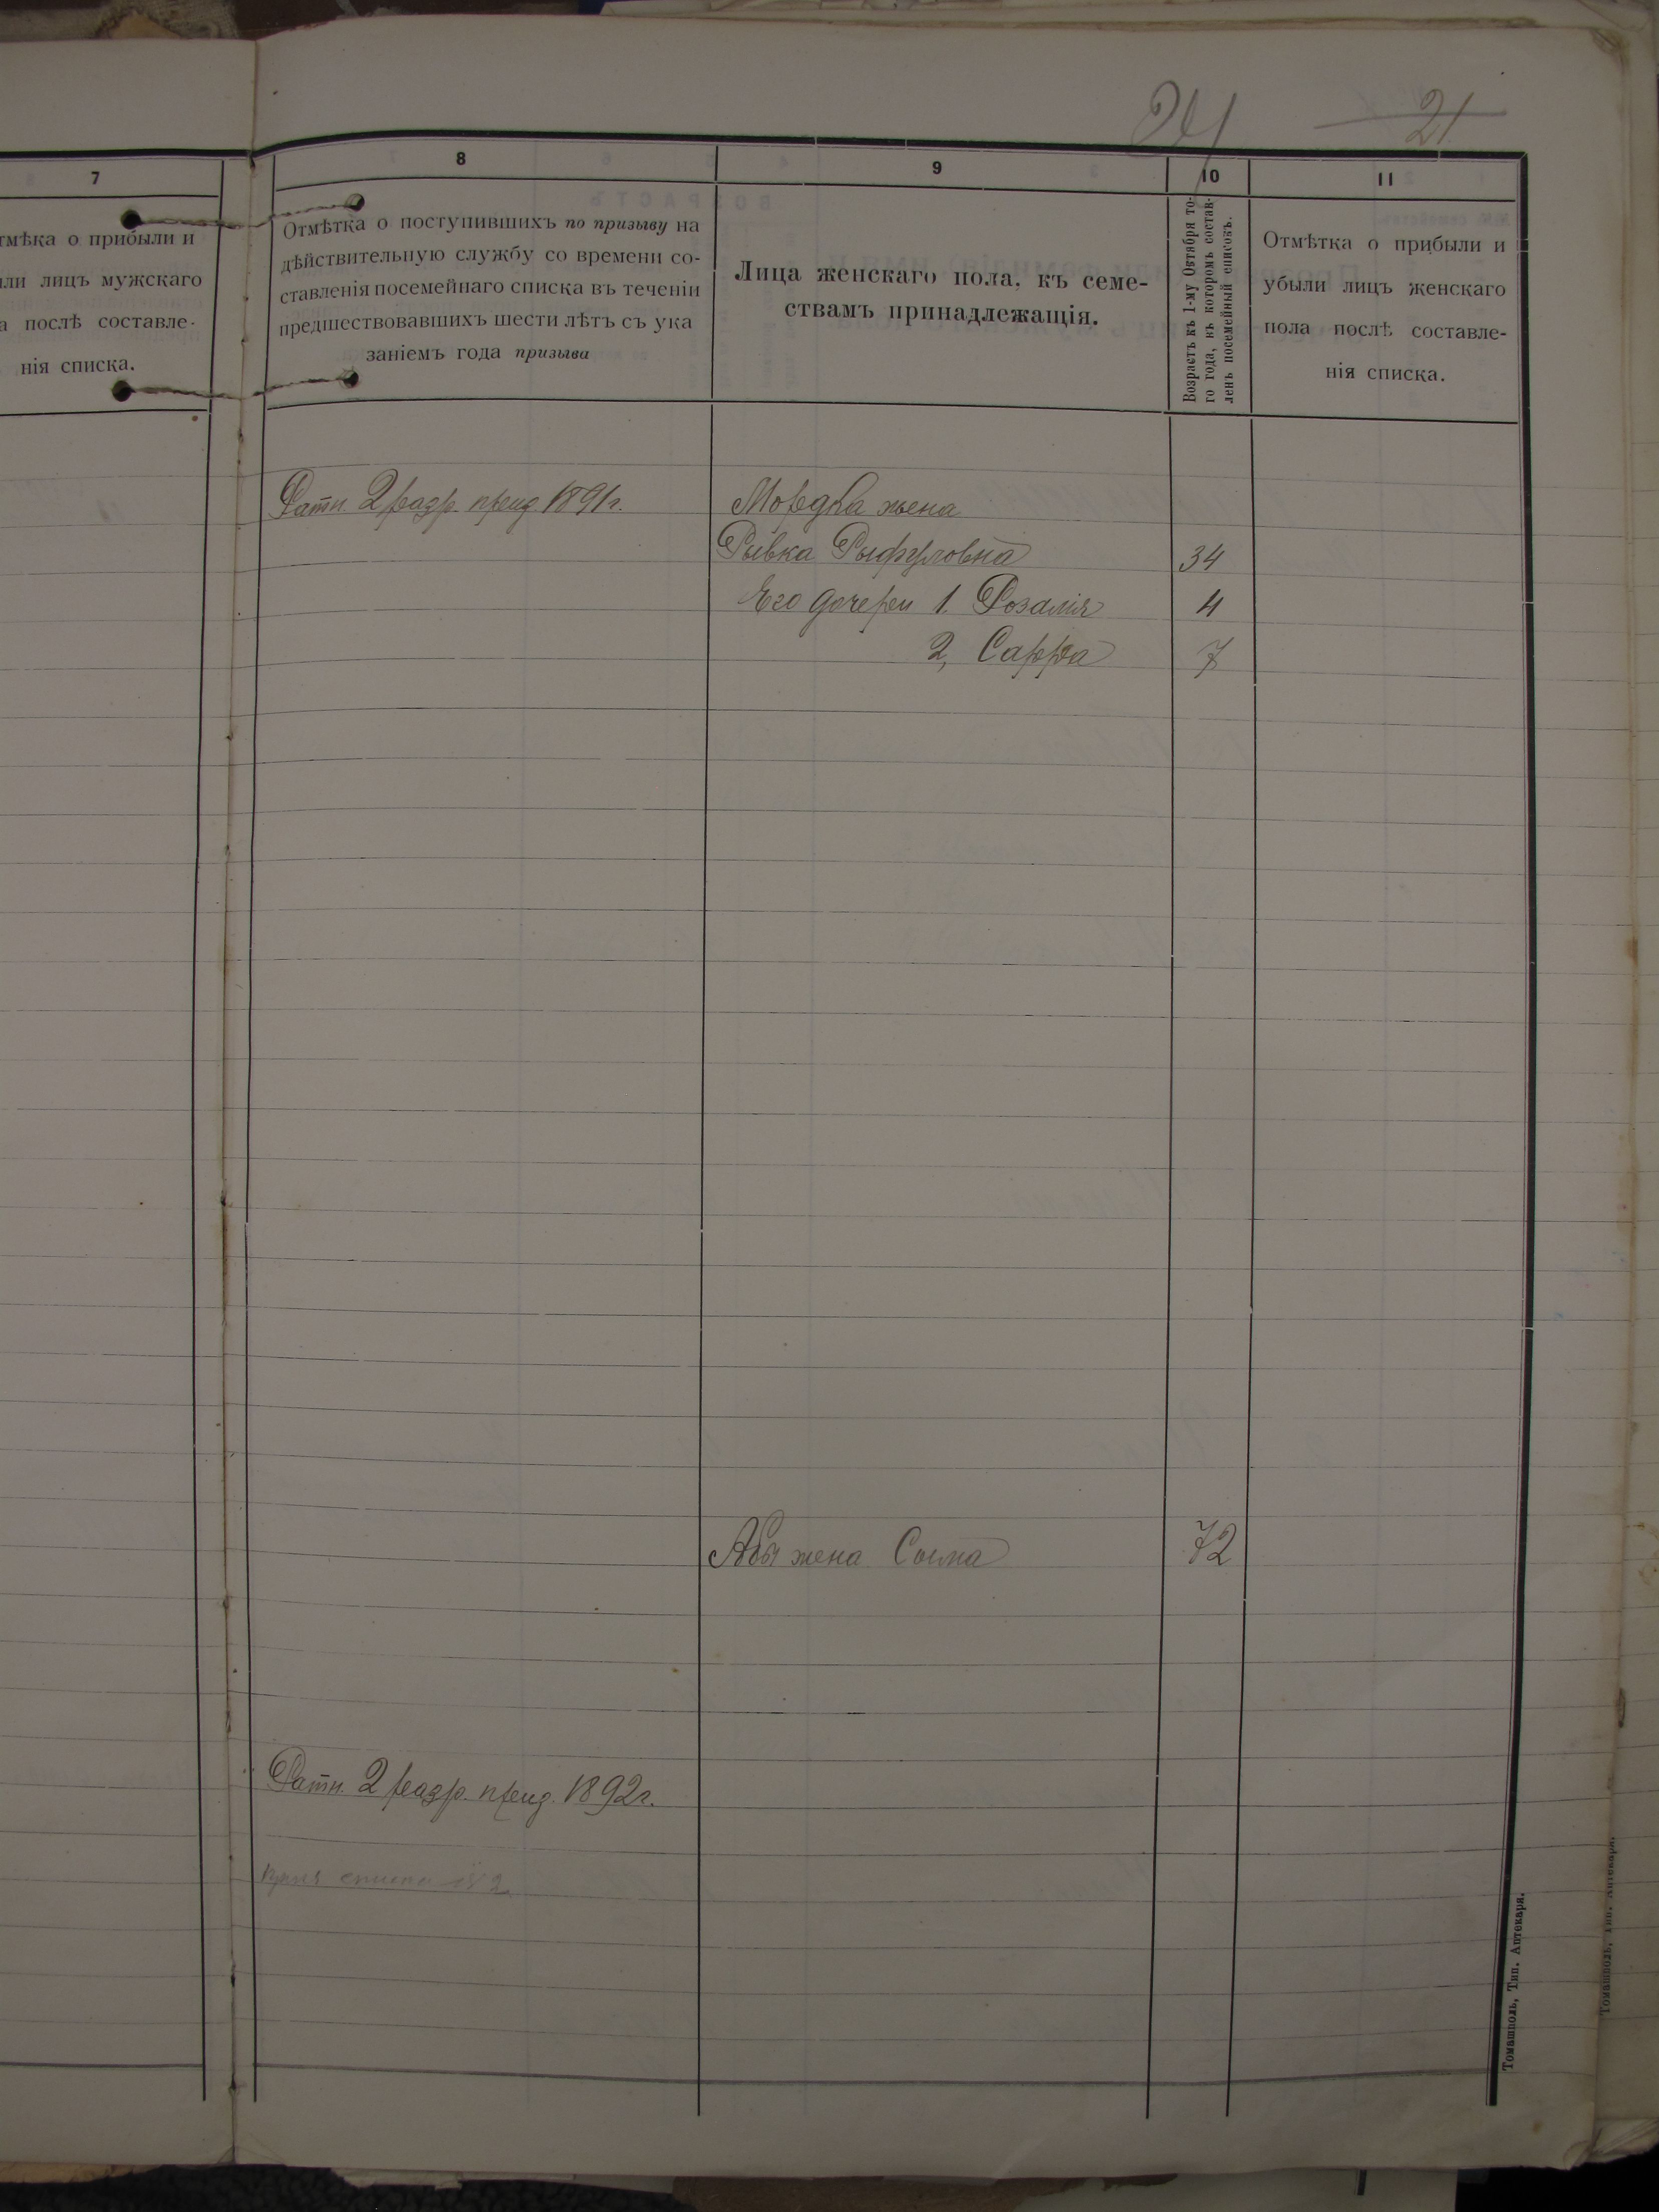 21
7
8
9
10
11
тмѣка о прибыли и
или лицъ мужскаго
а послѣ составле-
нія списка.
Отмѣтка о поступившихъ по призыву на
дѣйствительную службу со времени со-
ставленія посемейнаго списка въ теченіи
предшествовавшихъ шести лѣтъ съ ука
заніемъ года призыва
Лица женскаго пола, къ семе-
ствамъ принадлежащія.
Возрастъ къ 1-му Октября то-
го года, въ которомъ состав-
ленъ посемейный списокъ.
Отмѣтка о прибыли и
убыли лицъ женскаго
пола послѣ составле-
нія списка.
Ратн. 2 разр. приз 1891 г.
Мордка жена
Рывка 34
Его дочери 1. Розалія 4
2, Сарра 7
Абы жена Сыма 72
Ратн. 2 разр. приз. 1892 г.
Томашполь, Тип. Аптекаря.
Томашполь, Тип. Аптекаря.